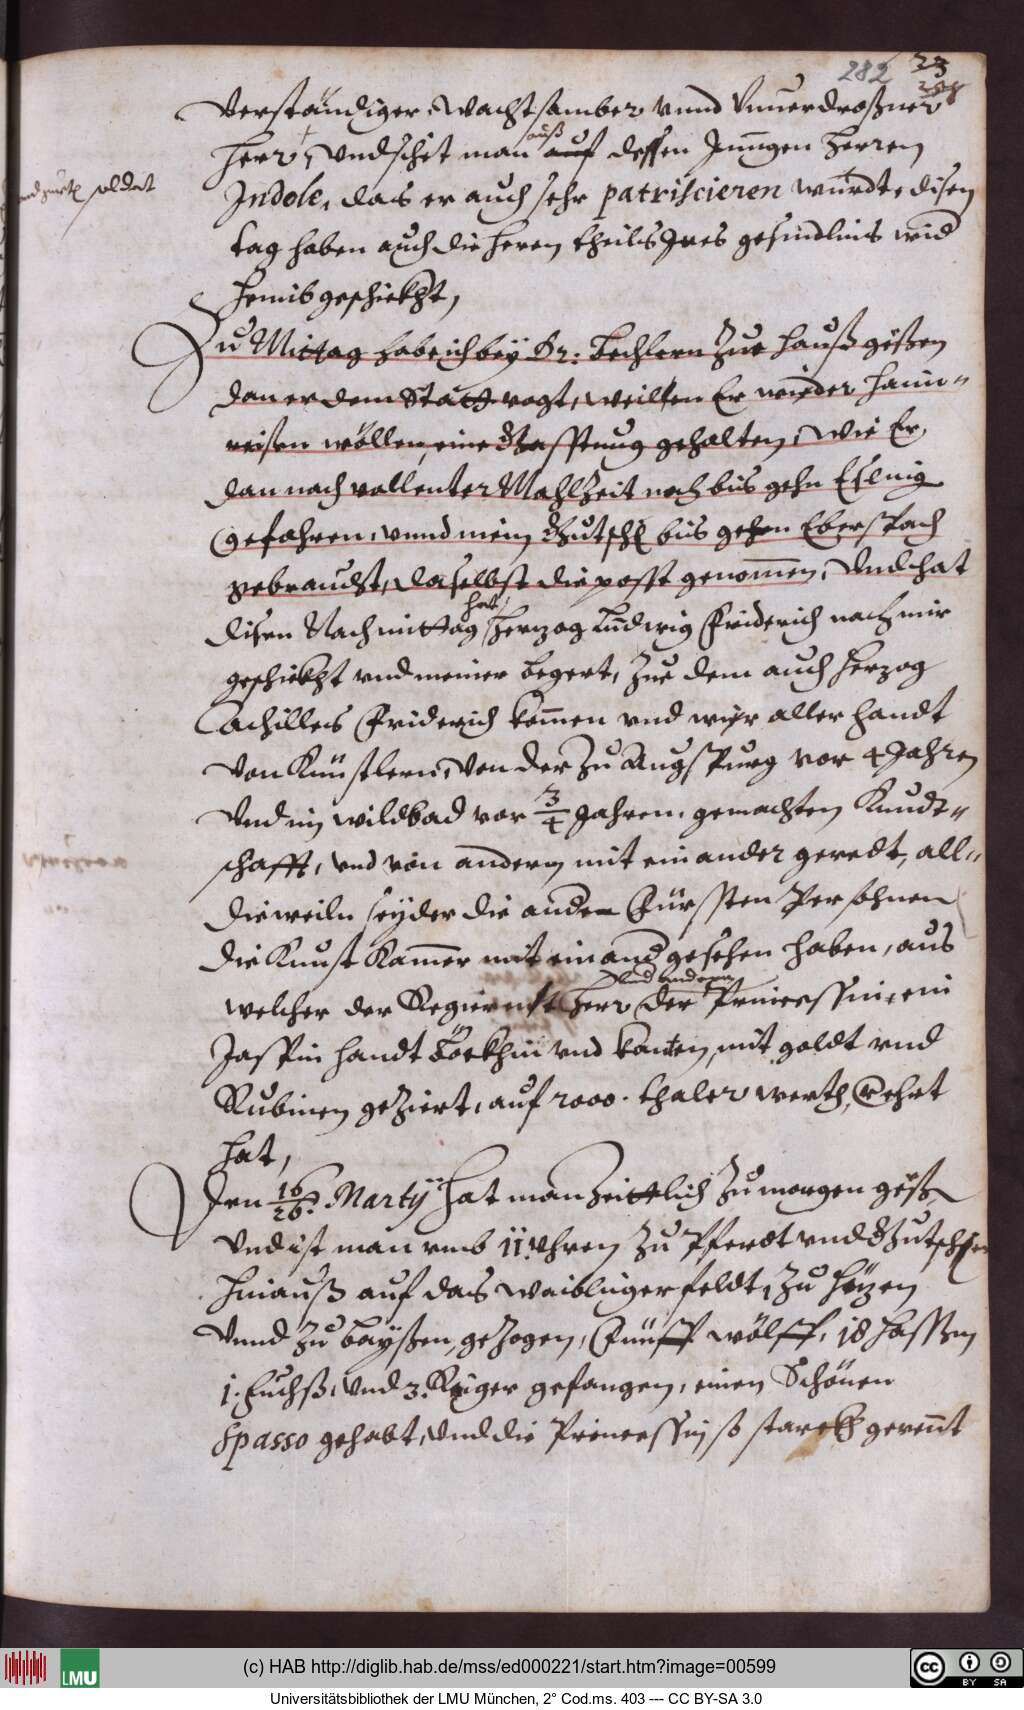 282 23
verständiger, wachtsamber vnnd vnuerdroßner
Herr, vnd sihet man auß auf dessen Jungen Herren
vnd guet soldat
Indole, das er auch sehr patriscieren wurdt, disen
tag haben auch die Herrn theils Jres gesindlins wid
heimbgeschickht,
Zu Mittag hab ich bey Dr: Bechlern Zue hauß gessen
dan er dem Stattvogt, weillen Er wieder haim-
reisen wöllen, eine Gasstung gehalten, wie Er,
dan nach vollenter Mahlzeit noch bis gehn Eslinig
gefahren, vnnd mein Gutschi bis gehen Eberspach
gebraucht, daselbst die posst genommen, Vnd hat
disen Nachmittag hat Herzog Ludwig Friderich nach mir
geschickht vnd meiner begert, Zue dem auch Herzog
Achilles Friderich kommen vnd wir aller handt
von Künstlern, von der Zu Augspurg vor 4 Jahren
Vnd im wildbad vor 3/4 Jahren, gemachten Kundt-
schafft, vnd von andern mit einander geredt, all-
dieweiln seyder die andern Fürsten Persohnen
die Kunst Kammer mit einand gesehen haben, aus
welcher der Regierendte Herr der Vnd andern Princessin, ein
Jasspin handt böckhin vnd kanten, mit goldt vnd
Rubinen geziert, auf 2000. thaler werth, verehrt
hat,
Den 16/26. Martÿ hat man zeittlich Zu morgen gessen
Vnd ist man vmb 11. Uhren Zu Pferdt vnd Gutschen
hinauß auf das waiblinger feldt, Zu hezen
Vnnd Zu baißen, gezogen, Fünff wölff, 18 Hassen
1. Fuchß, vnd 3. Raiger gefangen, einen Schönen
Spasso gehabt, Vnd die Princessin so starckh gerennt
(c) HAB http://diglib.hab.de/mss/ed000221/start.htm?image=00599
LMU
cc BY SA
Universitätsbibliothek der LMU München, 2° Cod.ms. 403 --- CC BY-SA 3.0